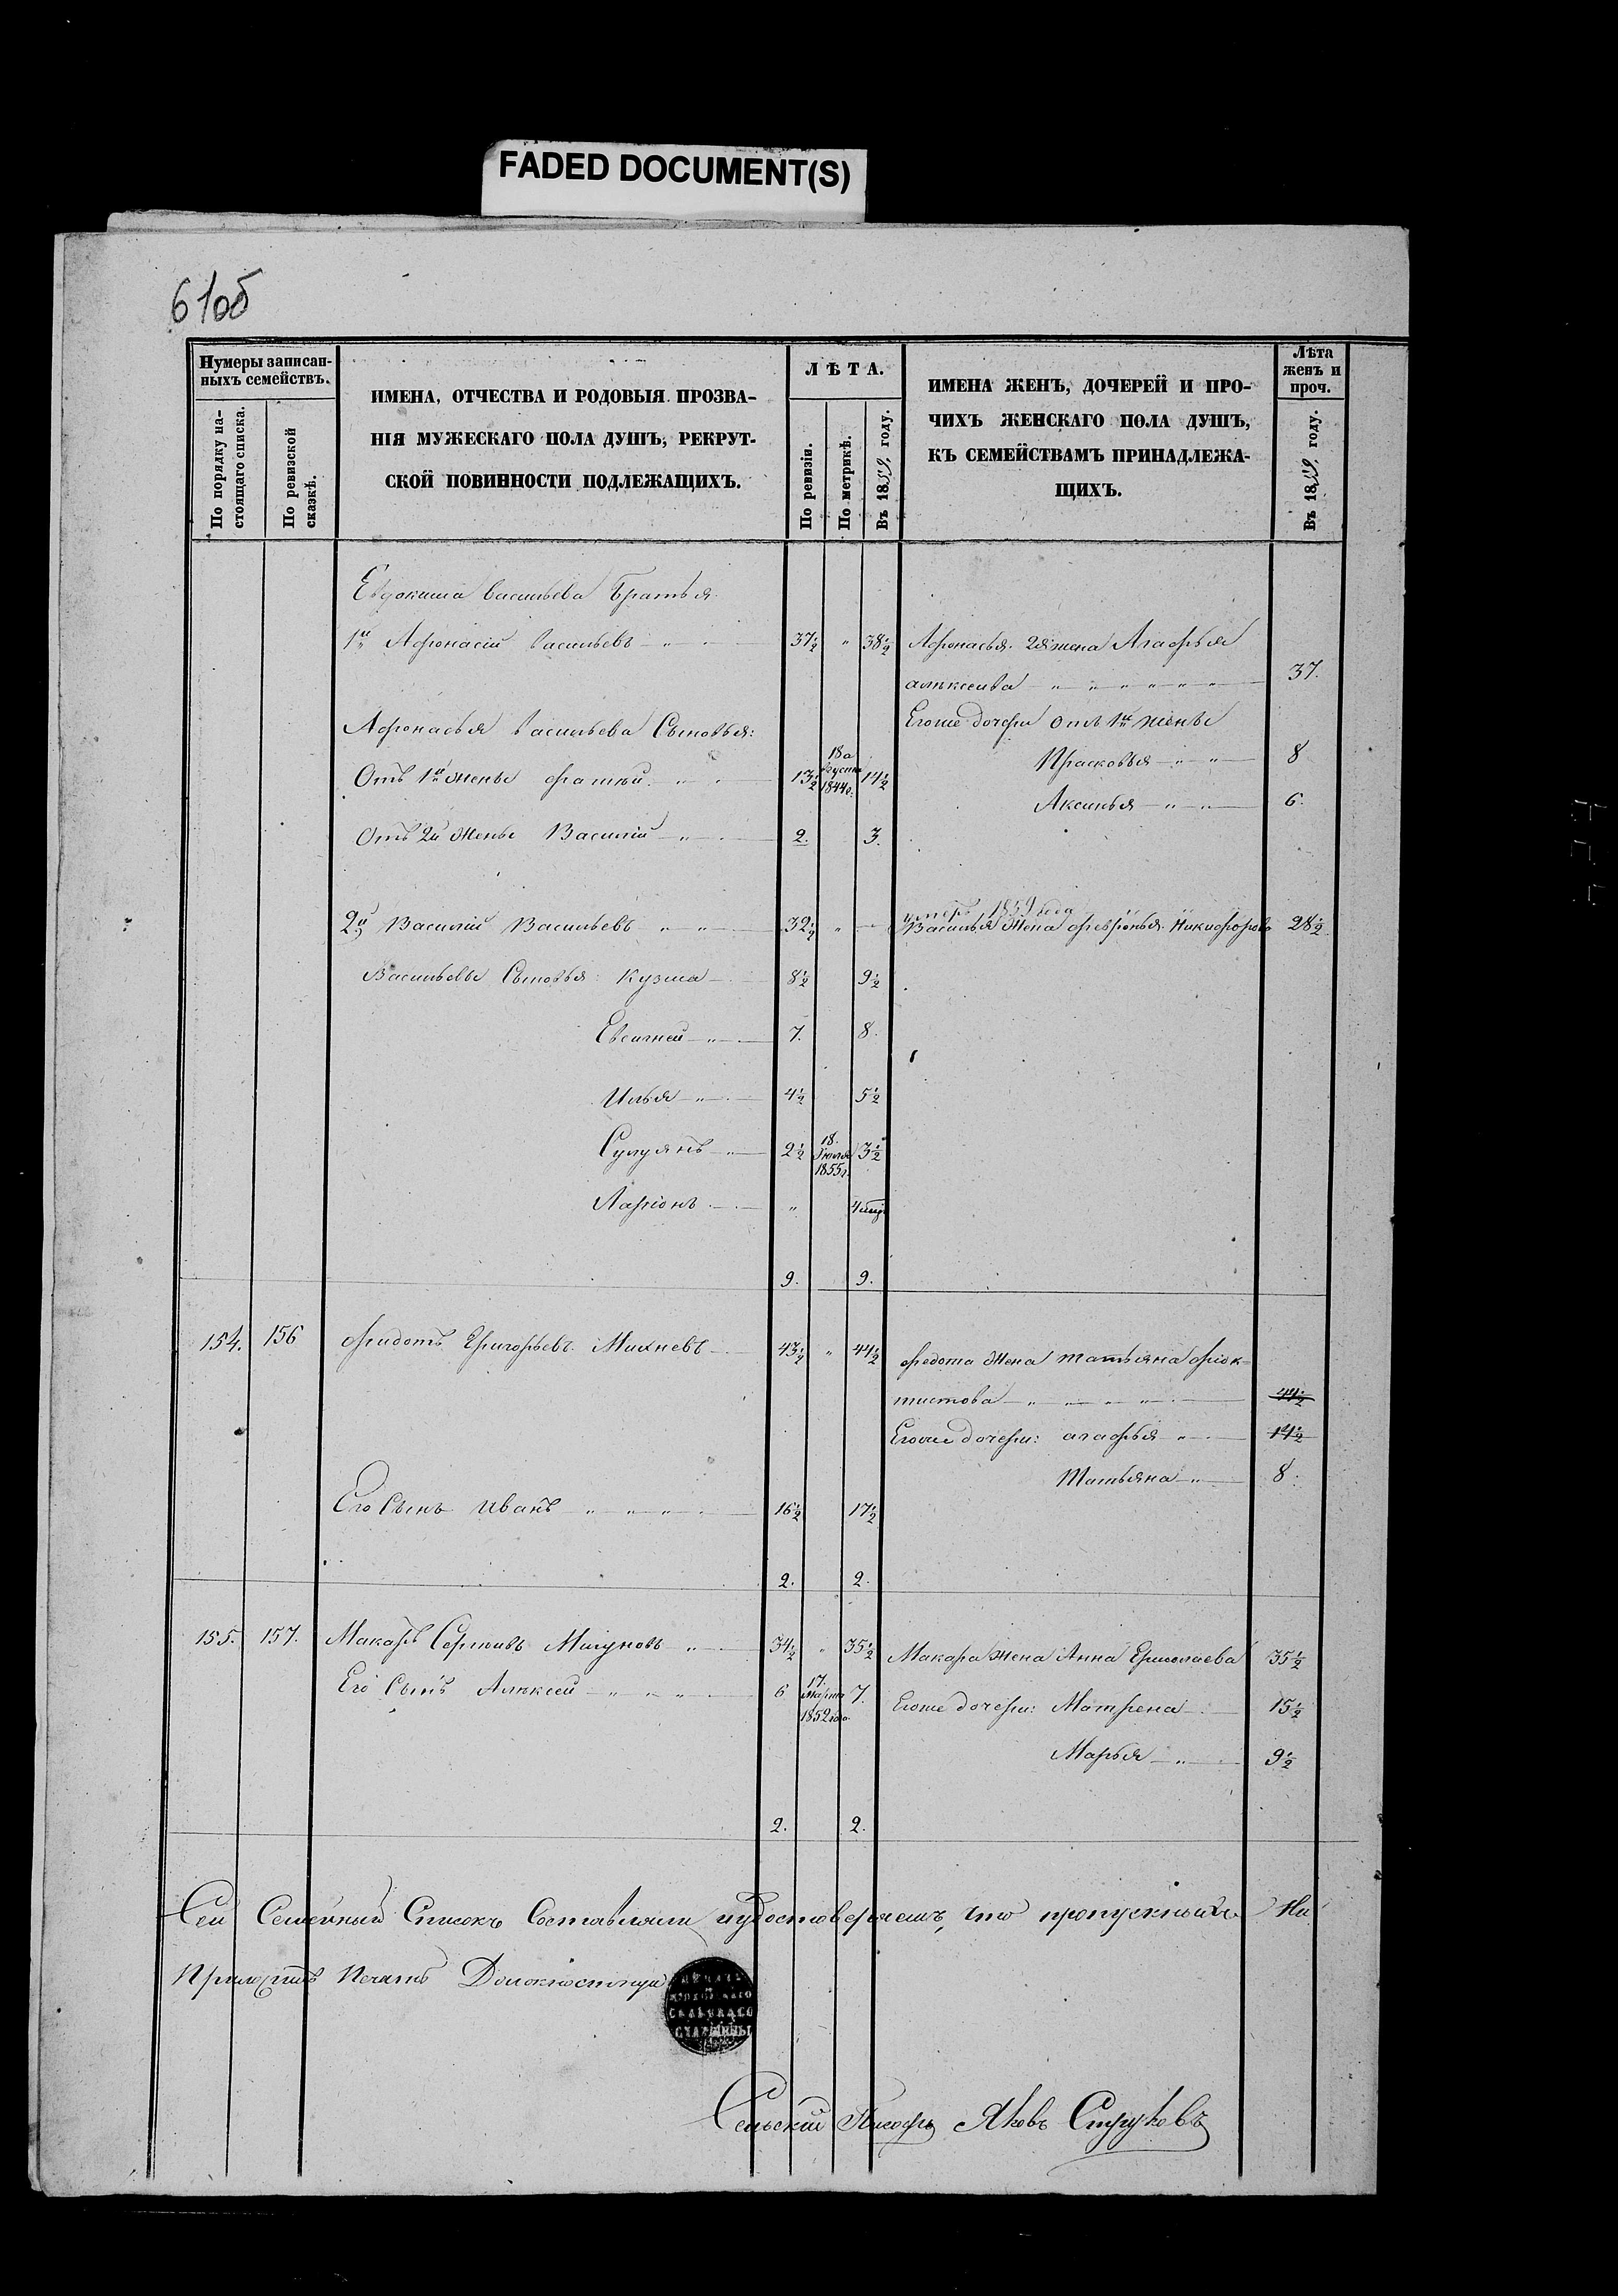 FADED DOCUMENT(S)
61об
Нумеры записан-
ныхъ семействъ.
По порядку на-
стоящаго списка.
По ревизской
сказкѣ.
ИМЕНА, ОТЧЕСТВА И РОДОВЫЯ ПРОЗВА-
НІЯ МУЖЕСКАГО ПОЛА ДУШЪ, РЕКРУТ-
СКОЙ ПОВИННОСТИ ПОДЛЕЖАЩИХЪ.
ЛѢТА.
По ревизіи.
По метрикѣ.
Въ 1859 году.
ИМЕНА ЖЕНЪ, ДОЧЕРЕЙ И ПРО-
ЧИХЪ ЖЕНСКАГО ПОЛА ДУШЪ,
КЪ СЕМЕЙСТВАМЪ ПРИНАДЛЕЖА-
ЩИХЪ.
Лѣта
женъ и
проч.
Въ 1859 году.
Евдокима Васильева Братья
1й Афонасій Васильевъ 37½ " 38½ Афонасья 2я жена Агафья
алѣксеива 37.
Афонасья Васильева Сыновья: Егоже дочери отъ 1й жены
Отъ 1й жены фатѣй 13½ 18 августа 1844г. 14½ Прасковья 8
Аксинья 6.
Отъ 2й жены Василій 2. 3.
умеръ 1859 года
2й Василій Васильевъ 32½ " Василья жена февронья Никифорова 28½
Васильевы Сыновья: Кузма 8½ 9½
Евсигней 7. 8.
Илья 4½ 5½
Сулуянъ 2½ 18. Іюля 1855г. 3½
Ларіонъ " 4
9. 9.
154. 156 фидотъ Григорьевъ Михневъ 43½ " 44½ федота жена татьяна фіок-
тистова 44½
Егоже дочери: агафья 14½
Татьяна 8.
Его Сынъ Иванъ 16½ 17½
2. 2.
155. 157. Макаръ Сергѣивъ Мигуновъ 34½ " 35½ Макара жена Анна Ермолаева 35½
Его Сынъ Алѣксей 6 17. Марта 1852года 7. Егоже дочери: Матрена 15½
Марья 9½
2. 2.
Сей Семейный Списокъ Составляли иудостоверяемъ, что пропускныхъ Ни
Печать
СЕЛЬСКАГО
СТАРШИНЫ
Сельскій Писарь Яковъ Струковъ